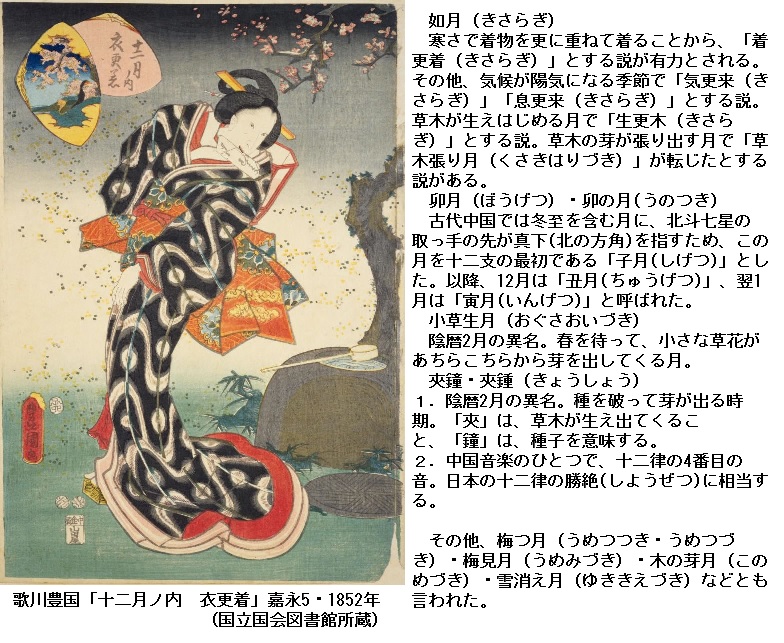 十二月ノ内
衣更着
如月（きさらぎ）
寒さで着物を更に重ねて着ることから、「着
更着（きさらぎ）」とする説が有力とされる。
その他、気候が陽気になる季節で「気更来（き
さらぎ）」「息更来（きさらぎ）」とする説。
草木が生えはじめる月で「生更木（きさら
ぎ）」とする説。草木の芽が張り出す月で「草
木張り月（くさきはりづき）」が転じたとする
説がある。
卯月（ぼうげつ）・卯の月(うのつき)
古代中国では冬至を含む月に、北斗七星の
取っ手の先が真下(北の方角)を指すため、この
月を十二支の最初である「子月(しげつ)」とし
た。以降、12月は「丑月(ちゅうげつ)」、翌1
月は「寅月(いんげつ)」と呼ばれた。
小草生月（おぐさおいづき）
陰暦2月の異名。春を待って、小さな草花が
あちらこちらから芽を出してくる月。
夾鐘・夾鍾（きょうしょう）
１．陰暦2月の異名。種を破って芽が出る時
期。「夾」は、草木が生え出てくるこ
と、「鐘」は、種子を意味する。
２．中国音楽のひとつで、十二律の4番目の
音。日本の十二律の勝絶(しようぜつ)に相当す
る。
その他、梅つ月（うめつつき・うめつづ
き）・梅見月（うめみづき）・木の芽月（この
めづき）・雪消え月（ゆききえづき）などとも
言われた。
歌川豊国「十二月ノ内　衣更着」嘉永5・1852年
（国立国会図書館所蔵）